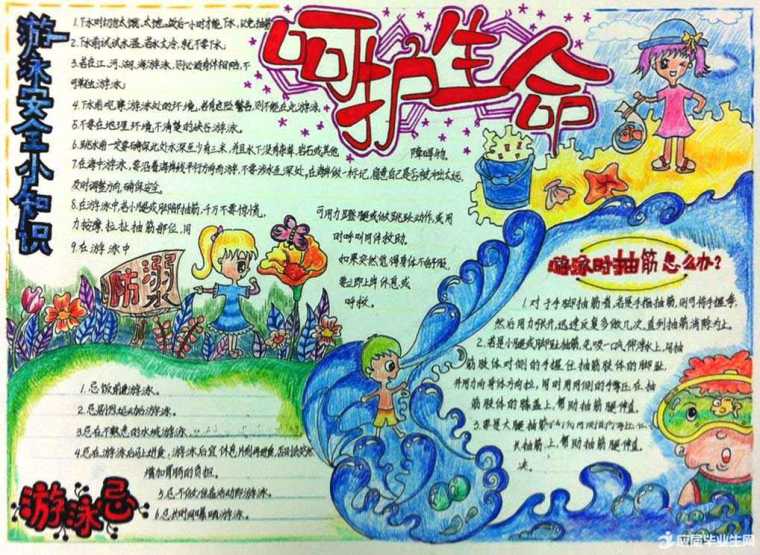 呵护生命
游泳安全小知识
1.下水时切勿太饿、太饱。饭后一小时才能下水，以免抽筋。
2.下水前试试水温，若水太冷，就不要下水。
3.若在江、河、湖、海游泳，则必须有伴相陪，不
可单独游泳。
4.下水前观察游泳处的环境，若有危险警告，则不能在此游泳。
5.不要在地理环境不清楚的峡谷游泳。
6.跳水前一定要确保此处水深至少有三米，并且水下没有杂草、岩石或其他
障碍物。
7.在海中游泳，要沿着海岸线平行方向而游，
及时调整方向，确保安全。
8.在游泳中若小腿或脚部抽筋，千万不要惊慌，
可用力蹬腿或做跳跃动作，或用
力按摩、拉扯抽筋部位，同
时呼叫同伴救助。
9.在游泳中
如果突然觉得身体不舒服，
要立即上岸休息或
呼救。
防溺
游泳时抽筋怎么办？
1.对于手脚抽筋者，若是手指抽筋，则可将手握拳，
然后用力张开，迅速反复多做几次，直到抽筋消除为止。
2.若是小腿或脚趾抽筋，先吸一口气仰浮水上，用抽
筋肢体对侧的手握住抽筋肢体的脚趾，
并用力向身体方向拉，同时用同侧的手掌压在抽
筋肢体的膝盖上，帮助抽筋腿伸直。
3.要是大腿抽筋
抽筋上，帮助抽筋腿伸直
决。
1.忌饭前后游泳。
2.忌剧烈运动后游泳。
3.忌在不熟悉的水域游泳。
4.忌在游泳后马上进食，游泳后宜休息片刻再进食，否则会突然
增加胃肠的负担。
5.忌不做准备活动即游泳。
6.忌长时间曝晒游泳。
游泳忌
应届毕业生网